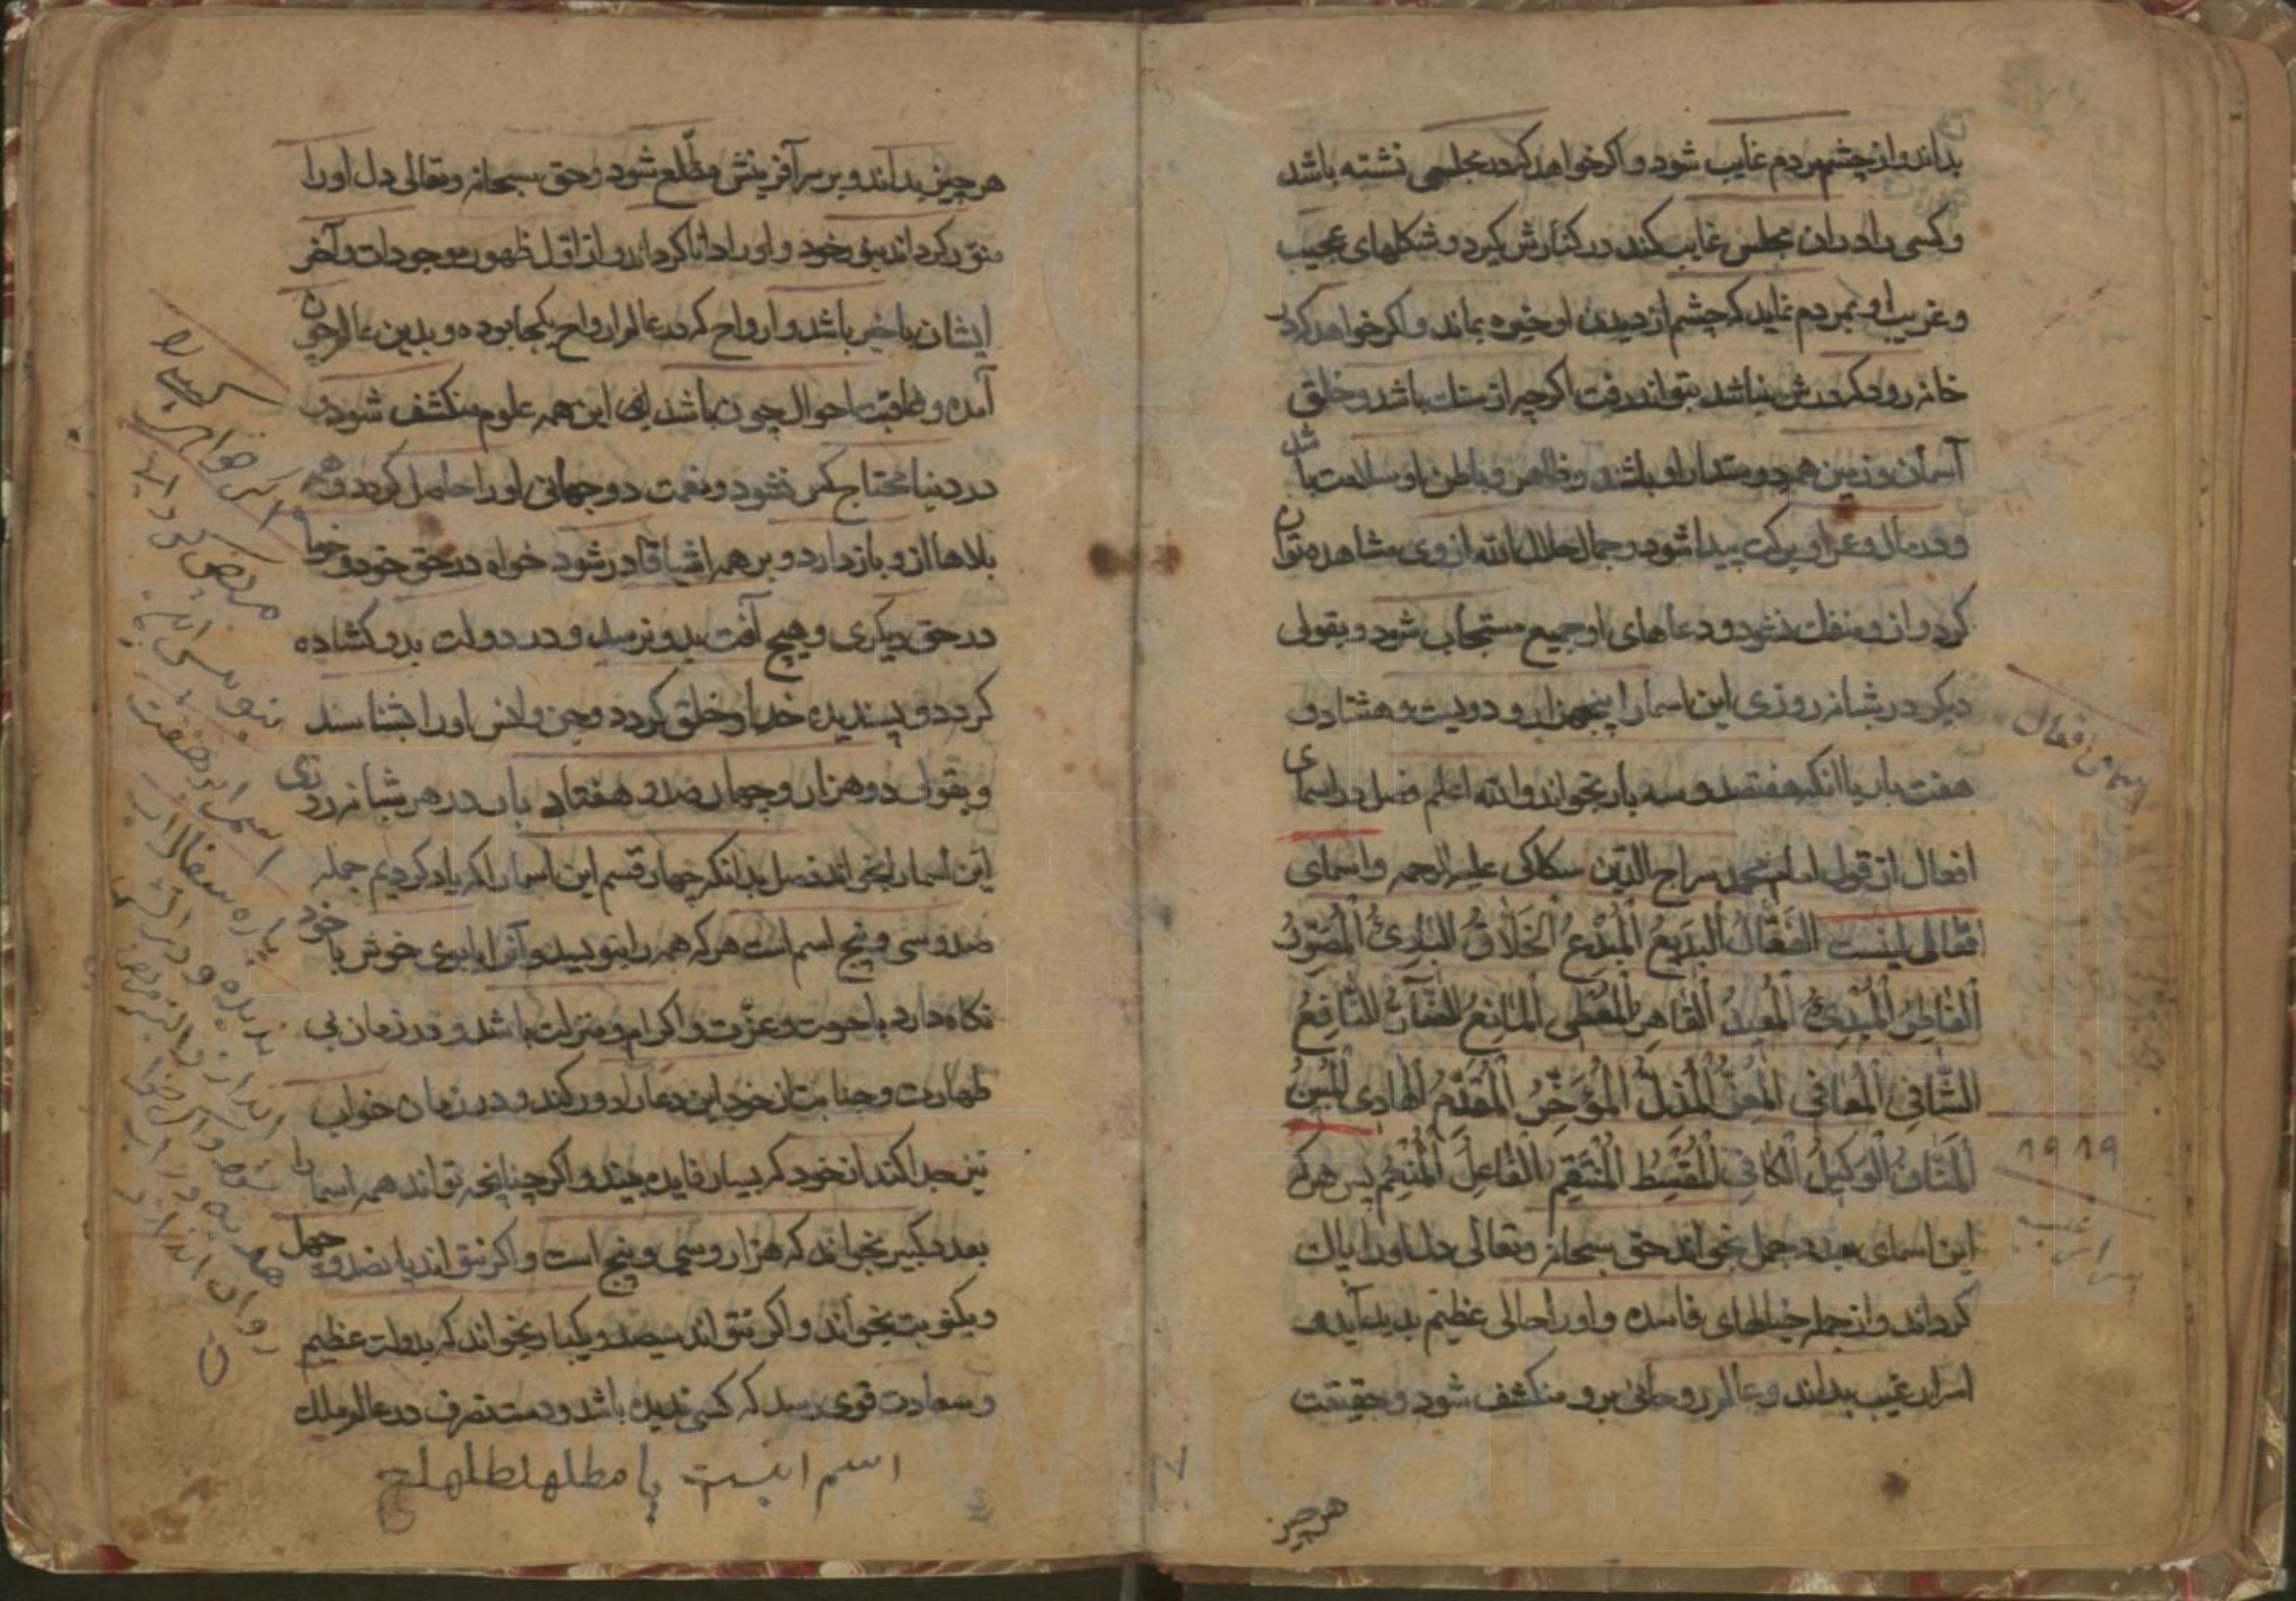 بداند و از چشم مردم غایب شود و اکر خواهد که در مجلسی نشته باشد
و کسی را در ان مجلس غایب کند در کنارش کیرد و شکلهای عجیب
و غریب او بمردم نماید که چشم از دیدن او خیره بماند و اکر خواهد که در
خانه رود که درش نباشد بتواند رفت اکر چه از سنك باشد و خلق
آسمان و زمین همه دوستدار او باشند و ظاهر و باطن او سلامت باشد
و در مال و عمر او برکت پیدا شود و جمال جلال الله از وی مشاهده توان
کرد و از و منفك نشود و دعاهای او جمیع مستجاب شود و بقولی
دیکر در شبانه روزی این اسما را پنجهزار و دویست و هشتاد و
هفت بار یا انکه هفتصد و سه بار بخواند والله اعلم فصل در اسمای
افعال از قول امام محمد سراج الدین سکاکی علیه الرحمه و اسمای
افعالی اینست الفَعَّالُ البَدیعُ المُبْدِعُ الخَلَّاقُ البَارِئُ المُصَوِّرُ
الفَاطِرُ المُبْدِئُ المُعِیدُ القَاهِرُ المُعْطِی المَانِعُ الضَّآرُّ النَّافِعُ
الشَّافِی المُعَافِی المُعِزُّ المُذِلُّ المُؤَخِّرُ المُقَدِّمُ الهَادِی
المَنَّانُ الوَکِیلُ الکَافِی المُقْسِطُ المُنْتَقِمُ الفَاعِلُ المُنْعِمُ پس هر که
این اسمای بعدد جمل بخواند حق سبحانه وتعالی دل او را پاك
کرداند و از جمله خیالهای فاسده و او را حالی عظیم پدید آید
اسرار غیب بداند و عالم روحانی برو منکشف شود و حقیقت
هر چیز
اسمای افعال
۱۹۱۹
هر چیز بداند و بر سر آفرینش مطّلع شود و حق سبحانه وتعالی دل او را
منوّر کرداند بنور خود و او را دانا کرداند و از اوّل ظهور موجودات و آخر
ایشان با خبر باشد و ارواح که در عالم ارواح یکجا بوده و بدین عالم چون
آمده و عاقبت احوال چون باشد این همه علوم منکشف شود و
در دنیا محتاج کس نشود و نعمت دو جهانی او را حاصل کردد و همه
بلاها از و باز دارد و بر همه اشیا قادر شود خواه در حق خود و خواه
در حق دیکری و هیچ آفت بدو نرسد و در دولت بدو کشاده
کردد و پسندیده خدا و خلق کردد و جن و انس او را بشناسند
و بقولی دو هزار و چهار صد و هفتاد بار در هر شبانه روزی
این اسما را بخواند فصل بدانکه چهار قسم این اسما را که یاد کردیم جمله
صد و سی و پنج اسم است هر که همه را بنویسد و آنرا با بوی خوش با خود
نکاه دارد با حرمت و عزّت و اکرام و منزلت باشد و در زمان بی
طهارت و جنابت از خود این دعا را دور کند و در زمان خواب
نیز جدا کند از خود که بسیار فایده بیند و اکر چنانچه تواند همه اسما را
بعدد کبیر بخواند که هزار و سی و پنج است و اکر نتواند پانصد و چهل
و یکنوبت بخواند و اکر نتواند سیصد و یکبار بخواند که بدولت عظیم
و سعادت قوی رسد که کسی ندیده باشد و دست تصرف در عالم ملك
اسم اینست
اکر خواهی که